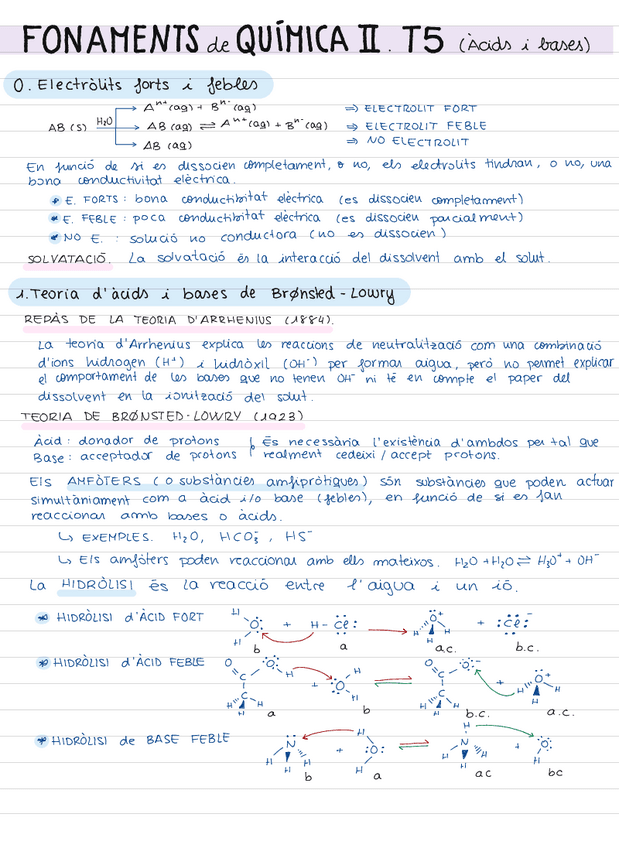 FONAMENTS de QUÍMICA II. T5 (Àcids i bases)
0. Electròlits forts i febles
AB (s) H₂O → Aⁿ⁺(aq) + Bⁿ⁻(aq) ⇒ ELECTROLIT FORT
→ AB (aq) ⇌ Aⁿ⁺(aq) + Bⁿ⁻(aq) ⇒ ELECTROLIT FEBLE
→ AB (aq) ⇒ NO ELECTROLIT
En funció de si es dissocien completament, o no, els electròlits tindran, o no, una
bona conductivitat elèctrica.
* E. FORTS: bona conductibitat elèctrica (es dissocien completament)
* E. FEBLE: poca conductibitat elèctrica (es dissocien parcialment)
* NO E. : solució no conductora (no es dissocien)
SOLVATACIÓ. La solvatació és la interacció del dissolvent amb el solut.
1. Teoria d'àcids i bases de Brønsted-Lowry
REPÀS DE LA TEORIA D'ARRHENIUS (1884).
La teoria d'Arrhenius explica les reaccions de neutralització com una combinació
d'ions hidrogen (H⁺) i hidròxil (OH⁻) per formar aigua, però no permet explicar
el comportament de les bases que no tenen OH⁻ ni té en compte el paper del
dissolvent en la ionització del solut.
TEORIA DE BRØNSTED-LOWRY (1923)
Àcid: donador de protons } És necessària l'existència d'ambdos per tal que
Base: acceptador de protons } realment cedeixi / accept protons.
Els AMFÒTERS (o substàncies amfipròtiques) són substàncies que poden actuar
simultàniament com a àcid i/o base (febles), en funció de si es fan
reaccionar amb bases o àcids.
↳ EXEMPLES. H₂O, HCO₃⁻, HS⁻
↳ Els amfòters poden reaccionar amb ells mateixos. H₂O + H₂O ⇌ H₃O⁺ + OH⁻
La HIDRÒLISI és la reacció entre l'aigua i un ió.
* HIDRÒLISI d'ÀCID FORT H O H + H - Cl → H O⁺ H H + Cl⁻
b a a.c. b.c.
* HIDRÒLISI d'ÀCID FEBLE O C O H C H H H + O H H ⇌ O C O⁻ C H H H + O⁺ H H H
a b b.c. a.c.
* HIDRÒLISI de BASE FEBLE N H H H + H O H ⇌ H N H H H + O H
b a ac bc